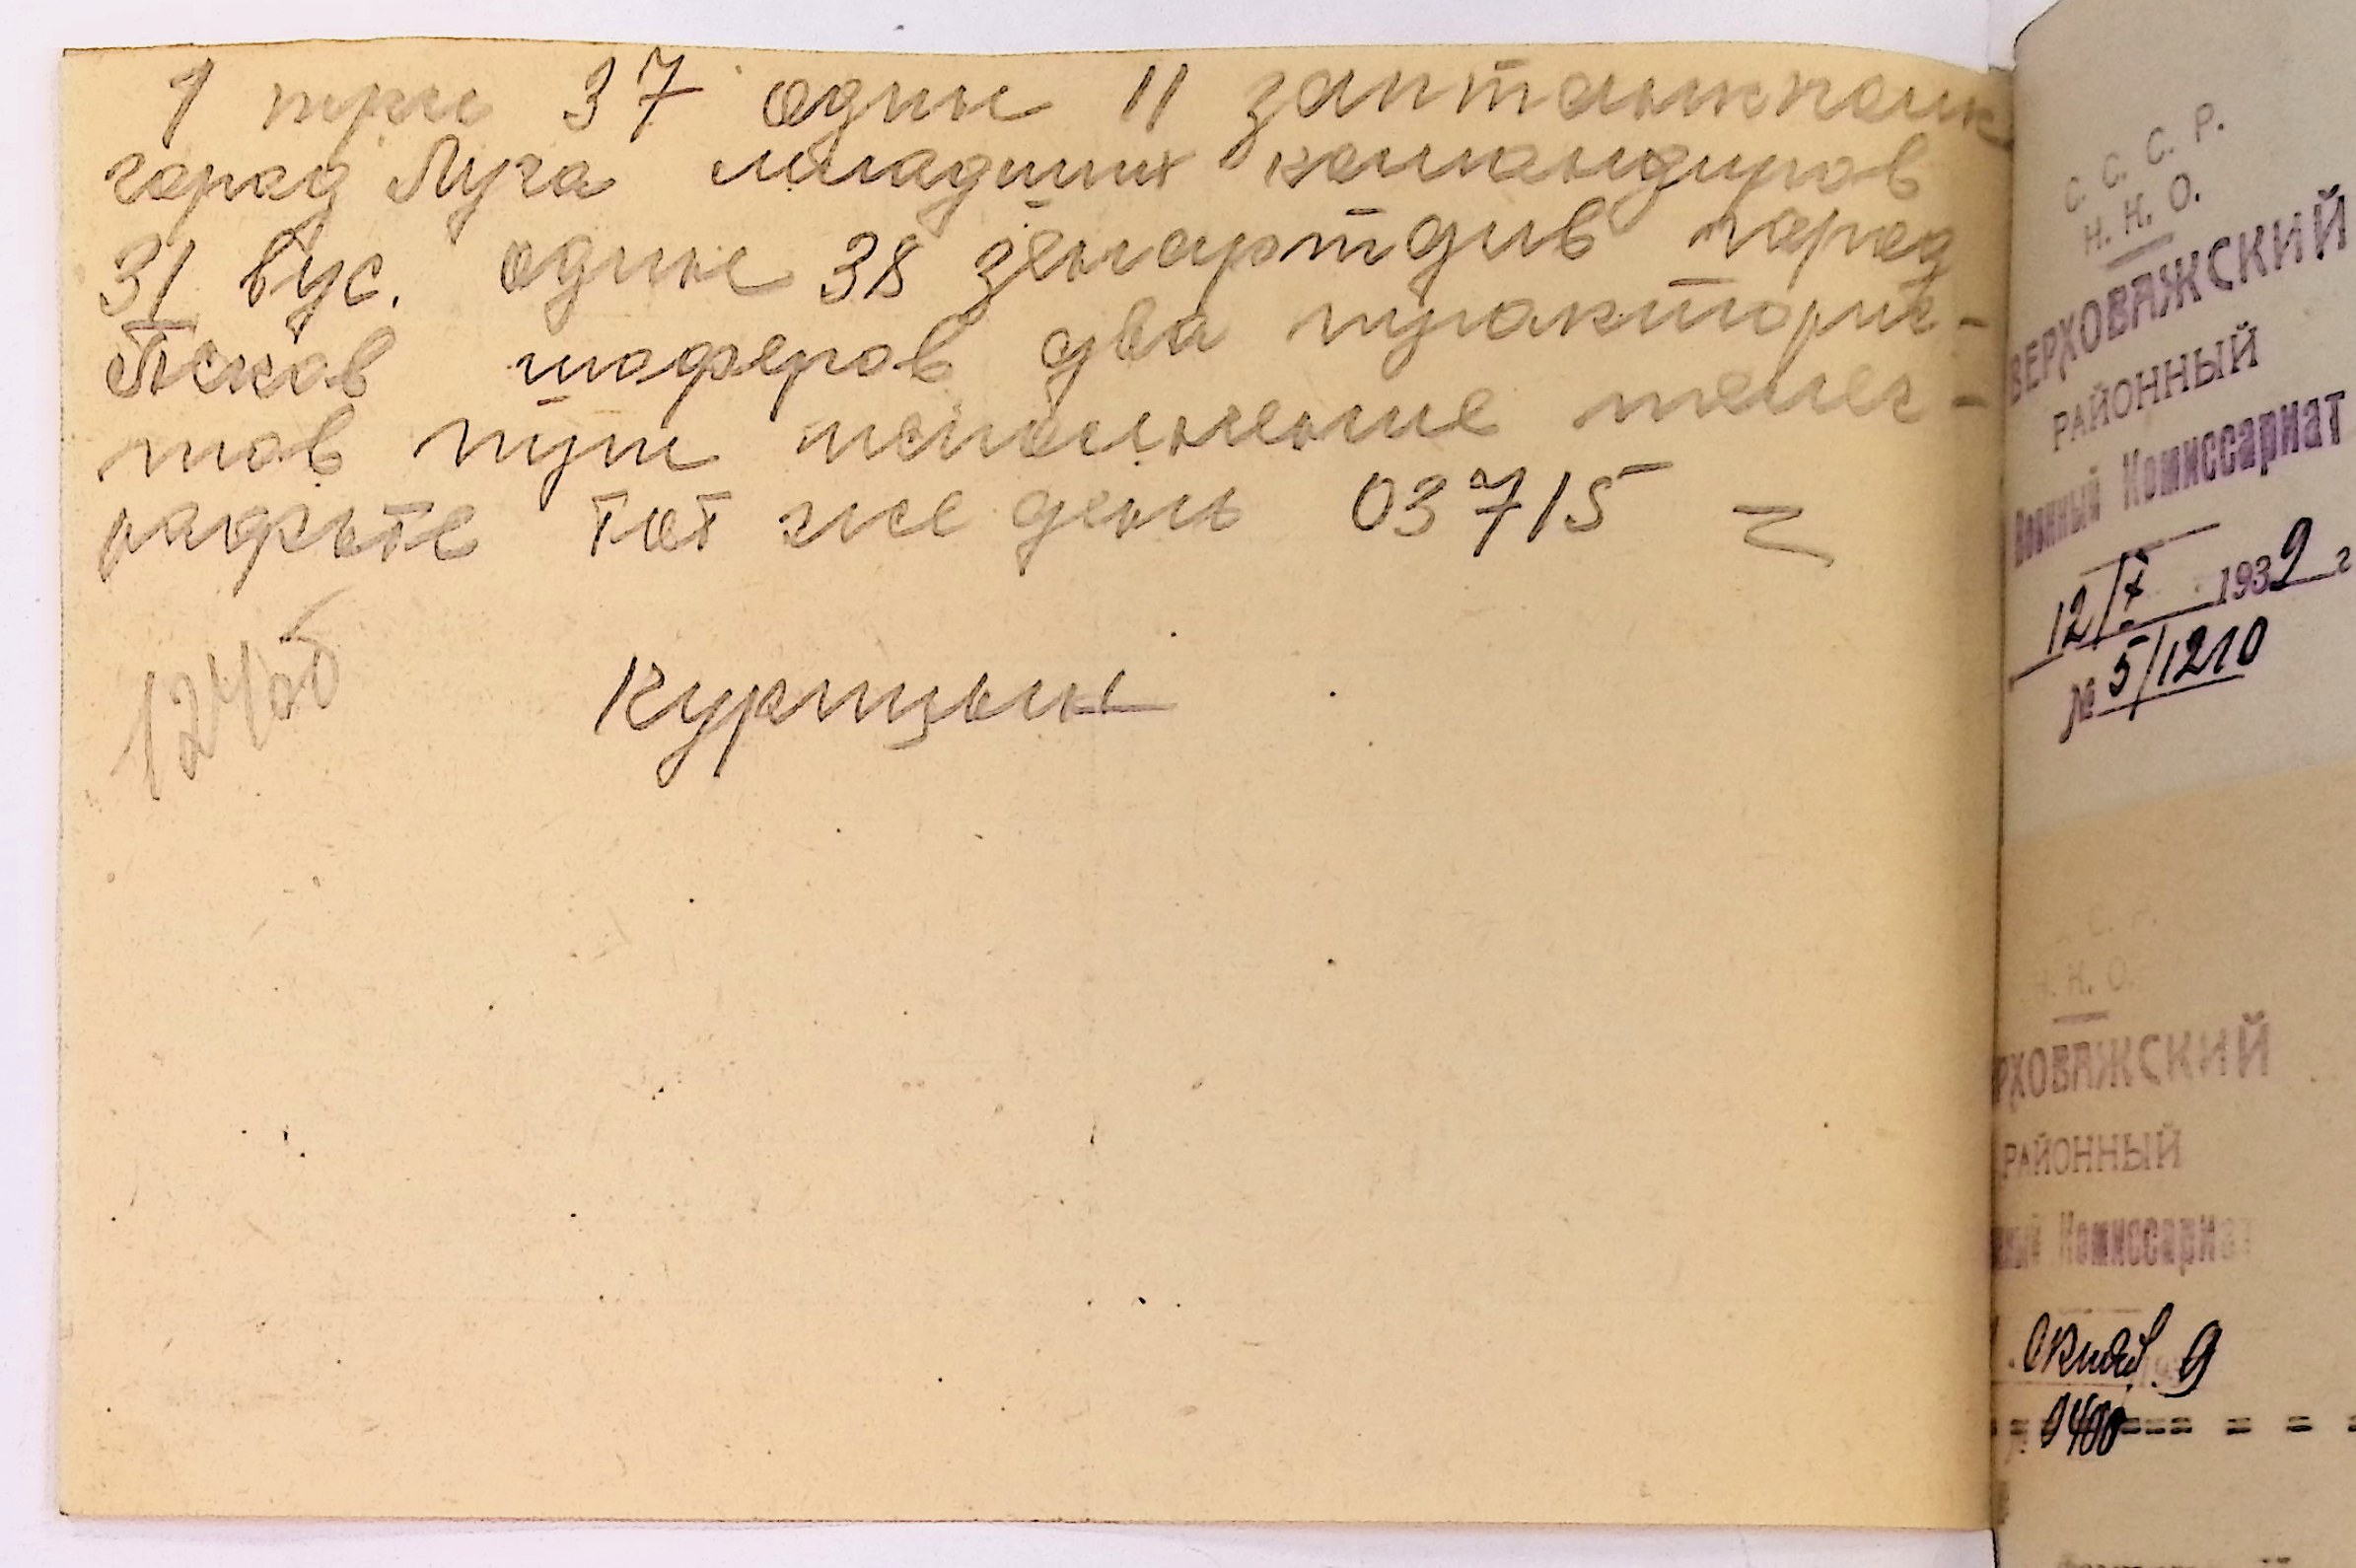 1 три 37 один 11 заптанкполк
город Луга младших командиров
31 вус. один 38 зенартдив город
Псков шоферов два трактори-
тов три исполнение телег-
рафьте тот же день 03715 =
Куртцын
С. С. С. Р.
Н. К. О.
ВЕРХОВАЖСКИЙ
РАЙОННЫЙ
Военный Комиссариат
12/X 1939 г
№ 5/1210
С. Р.
Н. К. О.
РХОВАЖСКИЙ
РАЙОННЫЙ
ный Комиссариат
Октяб. 9
0400